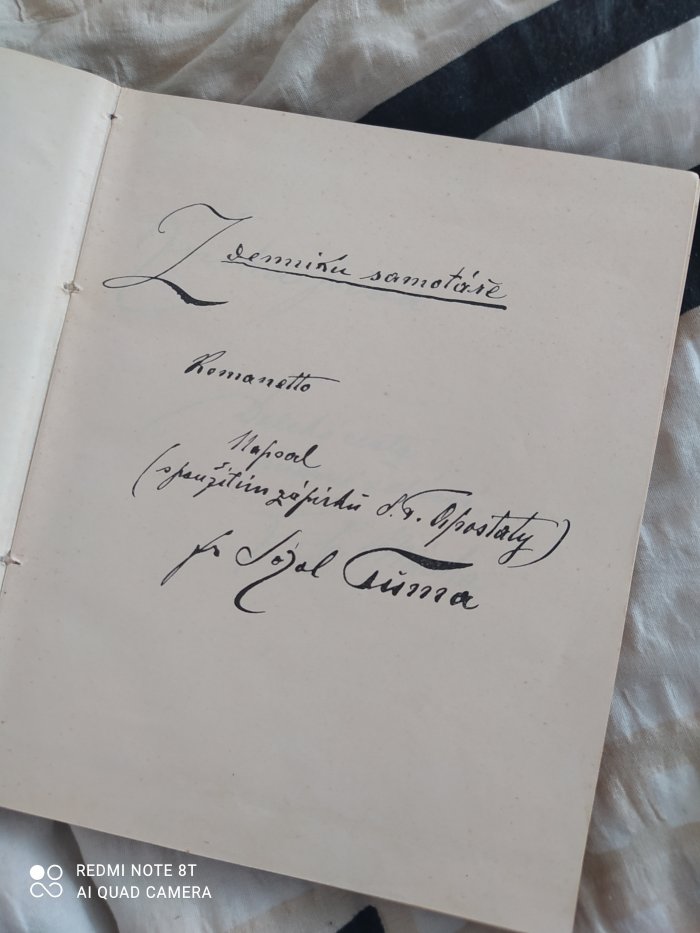 Z denníku samotáře
Romanetto
Napsal
(s použitím zápisků S. T. Apostaty)
fr Tůma
REDMI NOTE 8T
AI QUAD CAMERA